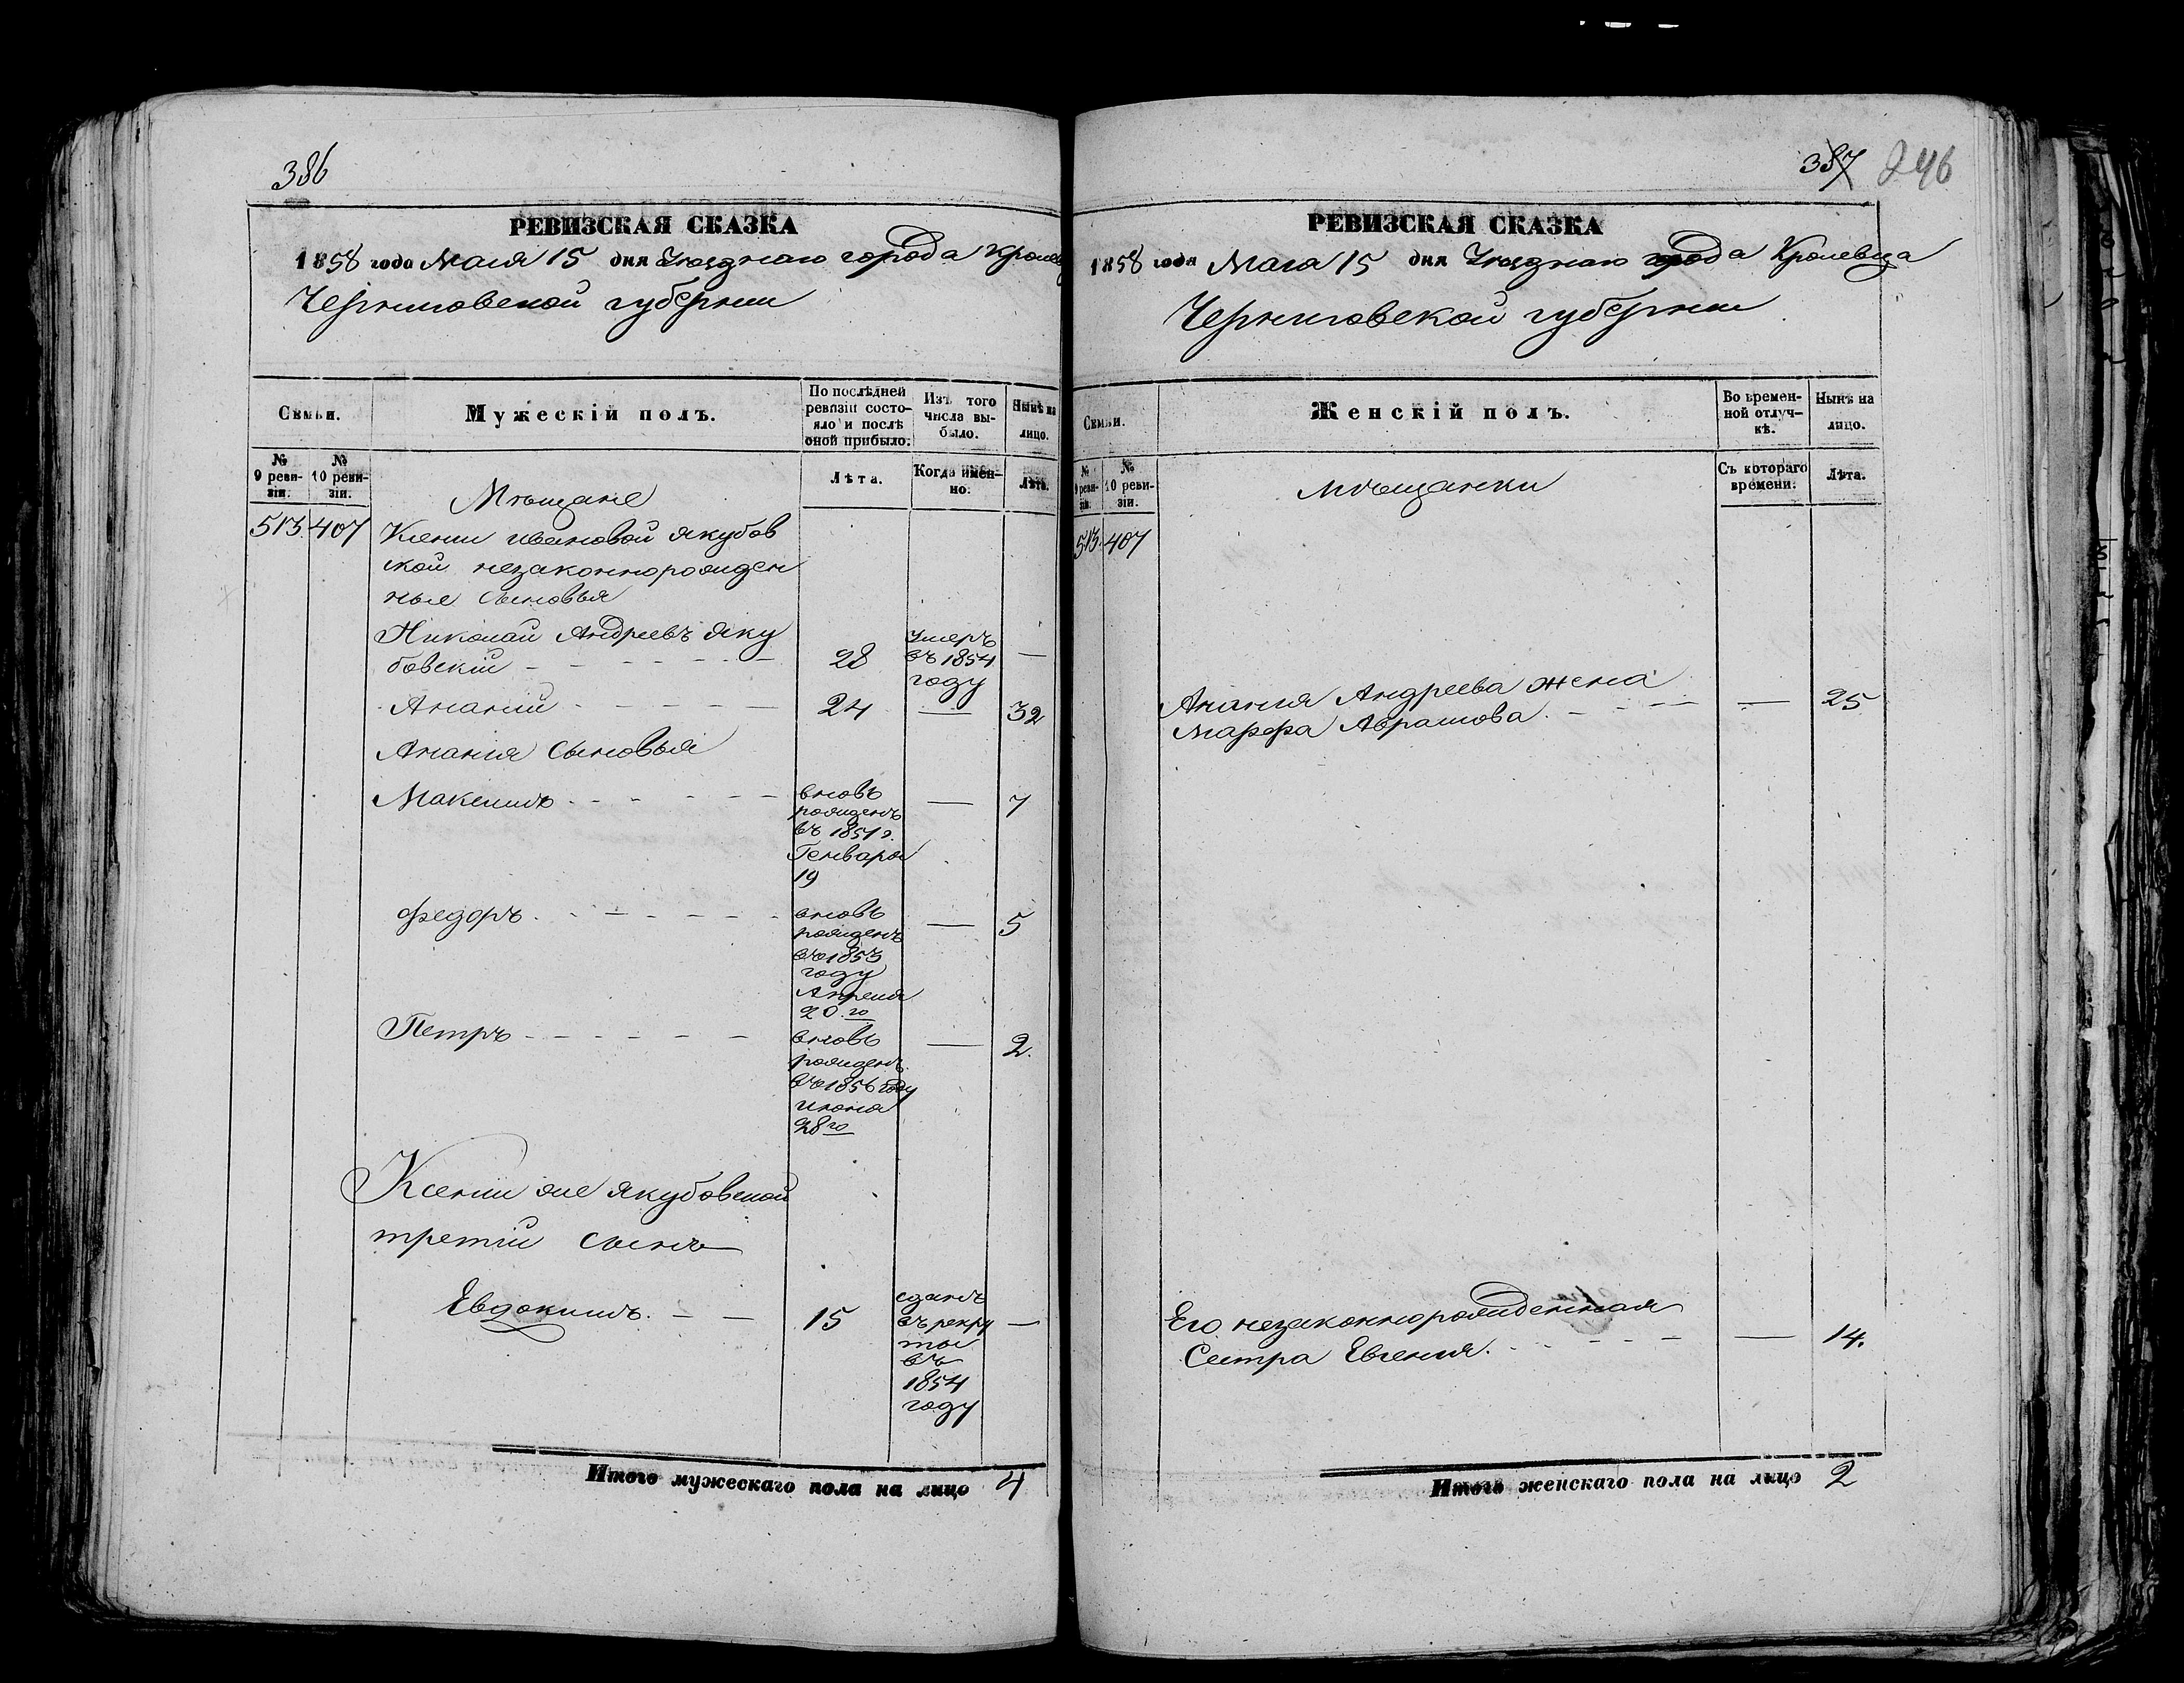 386
РЕВИЗСКАЯ СКАЗКА
1858 года Мая 15 дня Уѣзднаго города Кролев
Черниговской губерніи
Семьи.
Мужескій полъ.
По послѣдней ревизіи состояло и послѣ оной прибыло.
Изъ того числа выбыло.
Нынѣ на лицо.
№ 9 ревизіи.
№ 10 ревизіи.
Лѣта.
Когда именно.
Лѣта.
Мѣщане
513. 407 Ксеніи Ивановой Якубов
ской незаконнорожден
ные сыновья
Николай Андреевъ Яку
бовскій - - - - - - 28 Умеръ въ 1854 году —
Ананій - - - - - 24 — 32
Ананія сыновья
Максимъ - - - - - - вновь рожденъ въ 1851 г. Генваря 19 — 7
Федоръ - - - - - - - вновь рожденъ въ 1853 году Апреля 20.го — 5
Петръ - - - - - - вновь рожденъ въ 1856 году июня 28го — 2.
Ксеніи же Якубовской
третій сынъ
Евдокимъ. - - 15 сданъ въ рекруты въ 1854 году —
Итого мужескаго пола на лицо 4
387 246
РЕВИЗСКАЯ СКАЗКА
1858 года Мая 15 дня Уѣзднаго города Кролевца
Черниговской губерніи
Семьи.
Женскій полъ.
Во временной отлучкѣ.
Нынѣ на лицо.
№ 9 ревизіи.
№ 10 ревизіи.
Съ котораго времени.
Лѣта.
Мѣщанки
513. 407
Анания Андреева жена
Марфа Абрамова. - - - - — 25
Его незаконнорожденная
Сестра Евгения. - - - - — 14.
Итого женскаго пола на лицо 2